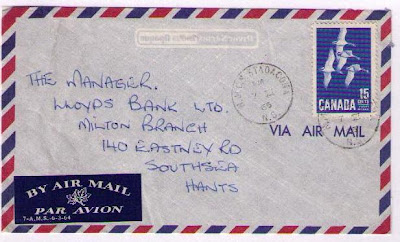 15
CENTS
CANADA
THE MANAGER.
LLOYDS BANK LTD.
MILTON BRANCH
140 EASTNEY RD
SOUTHSEA
HANTS
VIA AIR MAIL
BY AIR MAIL
PAR AVION
7-A.M.S.-6-3-64